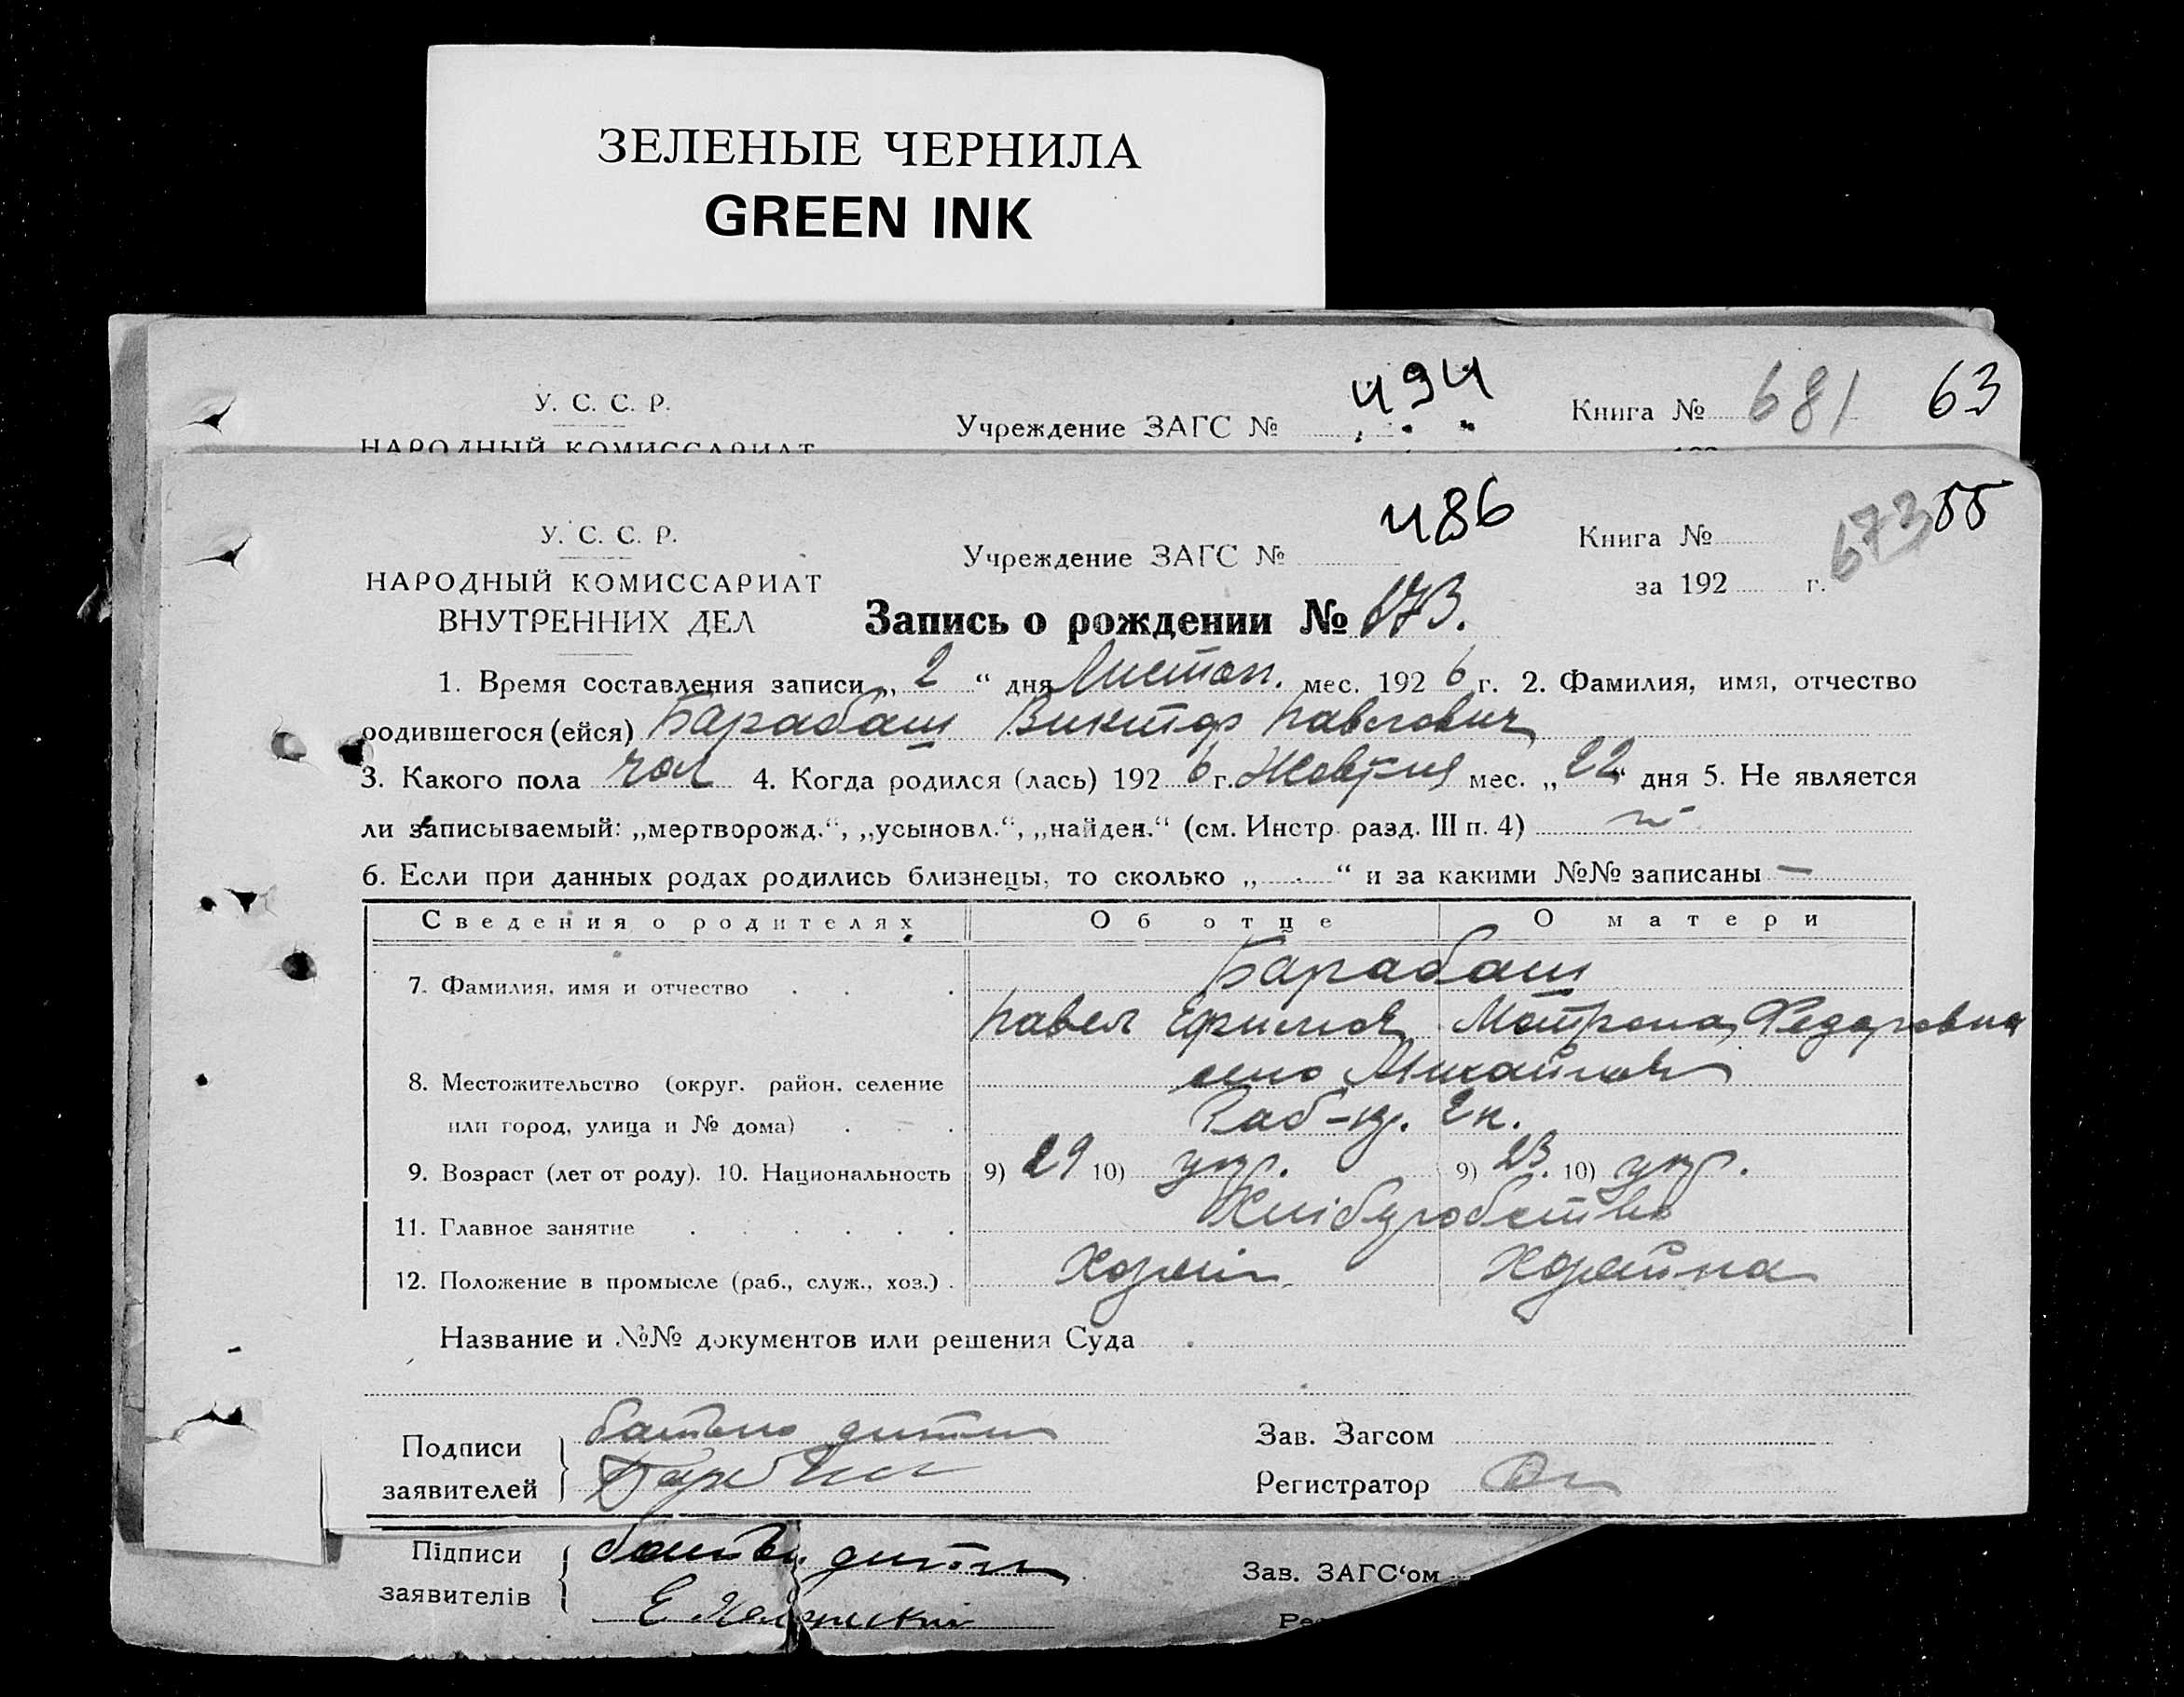 ЗЕЛЕНЫЕ ЧЕРНИЛА
GREEN INK
У. С. С. Р.
НАРОДНЫЙ КОМИССАРИАТ
Учреждение ЗАГС № 494
Книга № 681 63
У. С. С. Р.
НАРОДНЫЙ КОМИССАРИАТ
ВНУТРЕННИХ ДЕЛ
Учреждение ЗАГС № 486
Книга № 673 55
за 192 г.
Запись о рождении № 673.
1. Время составления записи „ 2 “ дня Листоп. мес. 192 6 г. 2. Фамилия, имя, отчество
родившегося (ейся) Барабаш Виктор Павлович
3. Какого пола чол 4. Когда родился (лась) 192 6 г. Жовтня мес. „ 22 “ дня 5. Не является
ли записываемый: „мертворожд.“, „усыновл.“, „найден.“ (см. Инстр. разд. III п. 4)
6. Если при данных родах родились близнецы, то сколько „ - “ и за какими №№ записаны —
Сведения о родителях Об отце О матери
Барабаш
7. Фамилия, имя и отчество . . .
Павел Ефимов Мотрона Федоровна
8. Местожительство (округ. район, селение
село Михайловка
или город, улица и № дома) . . .
9. Возраст (лет от роду). 10. Национальность 9) 29 10) укр. 9) 23. 10) укр.
11. Главное занятие . . . . . . Хліборобство
12. Положение в промысле (раб., служ., хоз.) . Хозяїн Хозяйка
Название и №№ документов или решения Суда
Подписи
заявителей
батько дитини
Зав. Загсом
Регистратор
Підписи
заявителів
батько дитини
Зав. ЗАГС‘ом
Ре